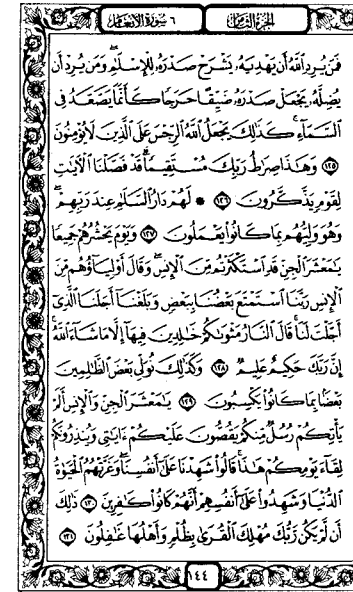 الجزء الثامن ٦ سورة الأنعام
فَمَن يُرِدِ ٱللَّهُ أَن يَهْدِيَهُۥ يَشْرَحْ صَدْرَهُۥ لِلْإِسْلَٰمِ ۖ وَمَن يُرِدْ أَن
يُضِلَّهُۥ يَجْعَلْ صَدْرَهُۥ ضَيِّقًا حَرَجًا كَأَنَّمَا يَصَّعَّدُ فِى
ٱلسَّمَآءِ ۚ كَذَٰلِكَ يَجْعَلُ ٱللَّهُ ٱلرِّجْسَ عَلَى ٱلَّذِينَ لَا يُؤْمِنُونَ
﴿١٢٥﴾ وَهَٰذَا صِرَٰطُ رَبِّكَ مُسْتَقِيمًا ۗ قَدْ فَصَّلْنَا ٱلْءَايَٰتِ
لِقَوْمٍ يَذَّكَّرُونَ ﴿١٢٦﴾ * لَهُمْ دَارُ ٱلسَّلَٰمِ عِندَ رَبِّهِمْ ۖ
وَهُوَ وَلِيُّهُم بِمَا كَانُوا۟ يَعْمَلُونَ ﴿١٢٧﴾ وَيَوْمَ يَحْشُرُهُمْ جَمِيعًا
يَٰمَعْشَرَ ٱلْجِنِّ قَدِ ٱسْتَكْثَرْتُم مِّنَ ٱلْإِنسِ ۖ وَقَالَ أَوْلِيَآؤُهُم مِّنَ
ٱلْإِنسِ رَبَّنَا ٱسْتَمْتَعَ بَعْضُنَا بِبَعْضٍ وَبَلَغْنَآ أَجَلَنَا ٱلَّذِىٓ
أَجَّلْتَ لَنَا ۚ قَالَ ٱلنَّارُ مَثْوَىٰكُمْ خَٰلِدِينَ فِيهَآ إِلَّا مَا شَآءَ ٱللَّهُ ۗ
إِنَّ رَبَّكَ حَكِيمٌ عَلِيمٌ ﴿١٢٨﴾ وَكَذَٰلِكَ نُوَلِّى بَعْضَ ٱلظَّٰلِمِينَ
بَعْضًۢا بِمَا كَانُوا۟ يَكْسِبُونَ ﴿١٢٩﴾ يَٰمَعْشَرَ ٱلْجِنِّ وَٱلْإِنسِ أَلَمْ
يَأْتِكُمْ رُسُلٌ مِّنكُمْ يَقُصُّونَ عَلَيْكُمْ ءَايَٰتِى وَيُنذِرُونَكُمْ
لِقَآءَ يَوْمِكُمْ هَٰذَا ۚ قَالُوا۟ شَهِدْنَا عَلَىٰٓ أَنفُسِنَا ۖ وَغَرَّتْهُمُ ٱلْحَيَوٰةُ
ٱلدُّنْيَا وَشَهِدُوا۟ عَلَىٰٓ أَنفُسِهِمْ أَنَّهُمْ كَانُوا۟ كَٰفِرِينَ ﴿١٣٠﴾ ذَٰلِكَ
أَن لَّمْ يَكُن رَّبُّكَ مُهْلِكَ ٱلْقُرَىٰ بِظُلْمٍ وَأَهْلُهَا غَٰفِلُونَ ﴿١٣١﴾
١٤٤